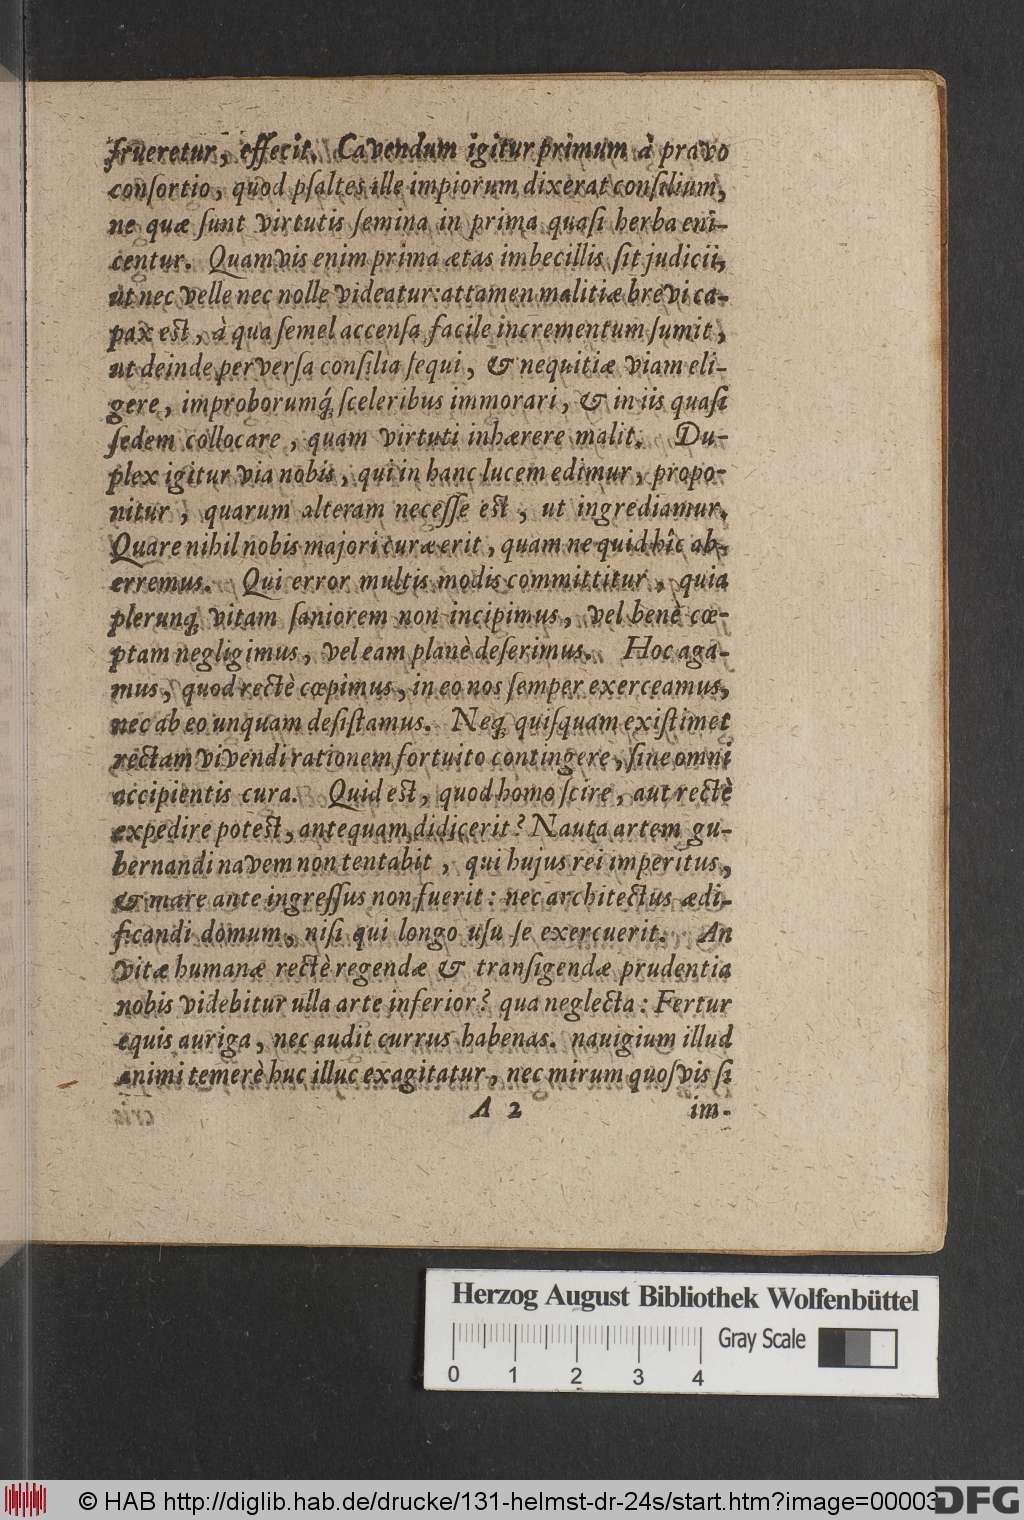 frueretur, effecit. Cavendum igitur primum à pravo
conſortio, quod pſaltes ille impiorum dixerat conſilium,
ne quæ ſunt virtutis ſemina in prima quaſi herba eni-
centur. Quamvis enim prima ætas imbecillis ſit judicii,
ut nec velle nec nolle videatur: attamen malitiæ brevi ca-
pax est, à qua ſemel accenſa facile incrementum ſumit,
ut deinde perverſa conſilia ſequi, & nequitiæ viam eli-
gere, improborumq́; ſceleribus immorari, & in iis quaſi
ſedem collocare, quam virtuti inhærere malit. Du-
plex igitur via nobis, qui in hanc lucem edimur, propo-
nitur, quarum alteram neceſſe est, ut ingrediamur.
Quare nihil nobis majori curæ erit, quam ne quid hîc ab-
erremus. Qui error multis modis committitur, quia
plerunq; vitam ſaniorem non incipimus, vel benè cœ-
ptam negligimus, vel eam planè deſerimus. Hoc aga-
mus, quod rectè cœpimus, in eo nos ſemper exerceamus,
nec ab eo unquam deſiſtamus. Neq; quiſquam exiſtimet
rectam vivendi rationem fortuito contingere, ſine omni
accipientis cura. Quid est, quod homo ſcire, aut rectè
expedire potest, antequam didicerit? Nauta artem gu-
bernandi navem non tentabit, qui hujus rei imperitus,
& mare ante ingreſſus non fuerit: nec architectus ædi-
ficandi domum, niſi qui longo uſu ſe exercuerit. An
vitæ humanæ rectè regendæ & tranſigendæ prudentia
nobis videbitur ulla arte inferior? qua neglecta: Fertur
equis auriga, nec audit currus habenas. nauigium illud
animi temerè huc illuc exagitatur, nec mirum quoſvis ſi
A 2 im-
Herzog August Bibliothek Wolfenbüttel
Gray Scale
0 1 2 3 4
© HAB http://diglib.hab.de/drucke/131-helmst-dr-24s/start.htm?image=00003
DFG